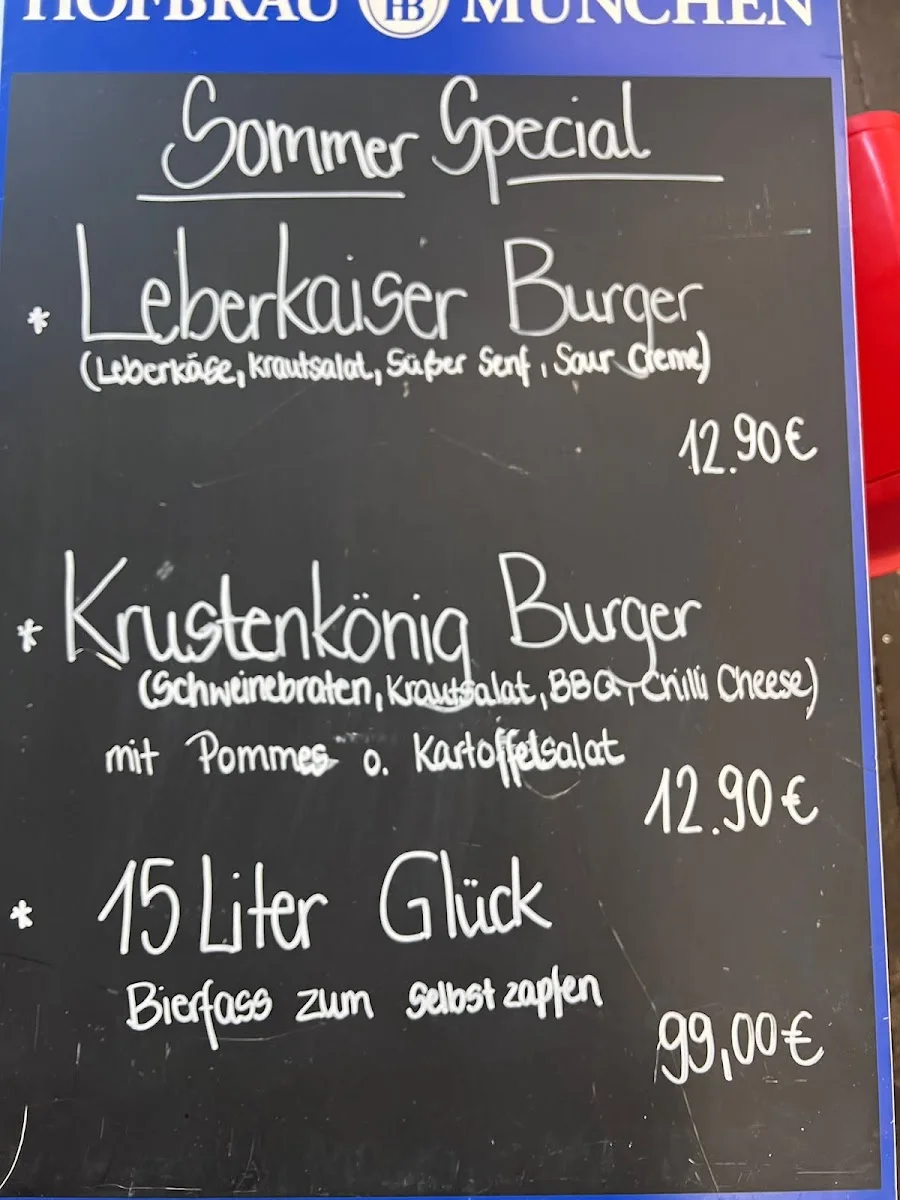 HOFBRÄU HB MÜNCHEN
Sommer Special
* Leberkaiser Burger
(Leberkäse, Krautsalat, Süßer Senf, Sour Creme)
12.90€
* Krustenkönig Burger
(Schweinebraten, Krautsalat, BBQ, Chilli Cheese)
mit Pommes o. Kartoffelsalat
12.90€
* 15 Liter Glück
Bierfass zum Selbst zapfen
99,00€